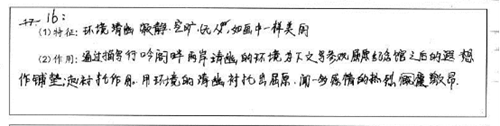 16：
(1)特征：环境清幽、寂静、空旷、优美，如画中一样美丽
(2)作用：通过描写行吟阁畔两岸清幽的环境为下文写参观屈原纪念馆之后的遐想
作铺垫；起衬托作用，用环境的清幽衬托出屈原、闻一多感情的热烈 激昂.